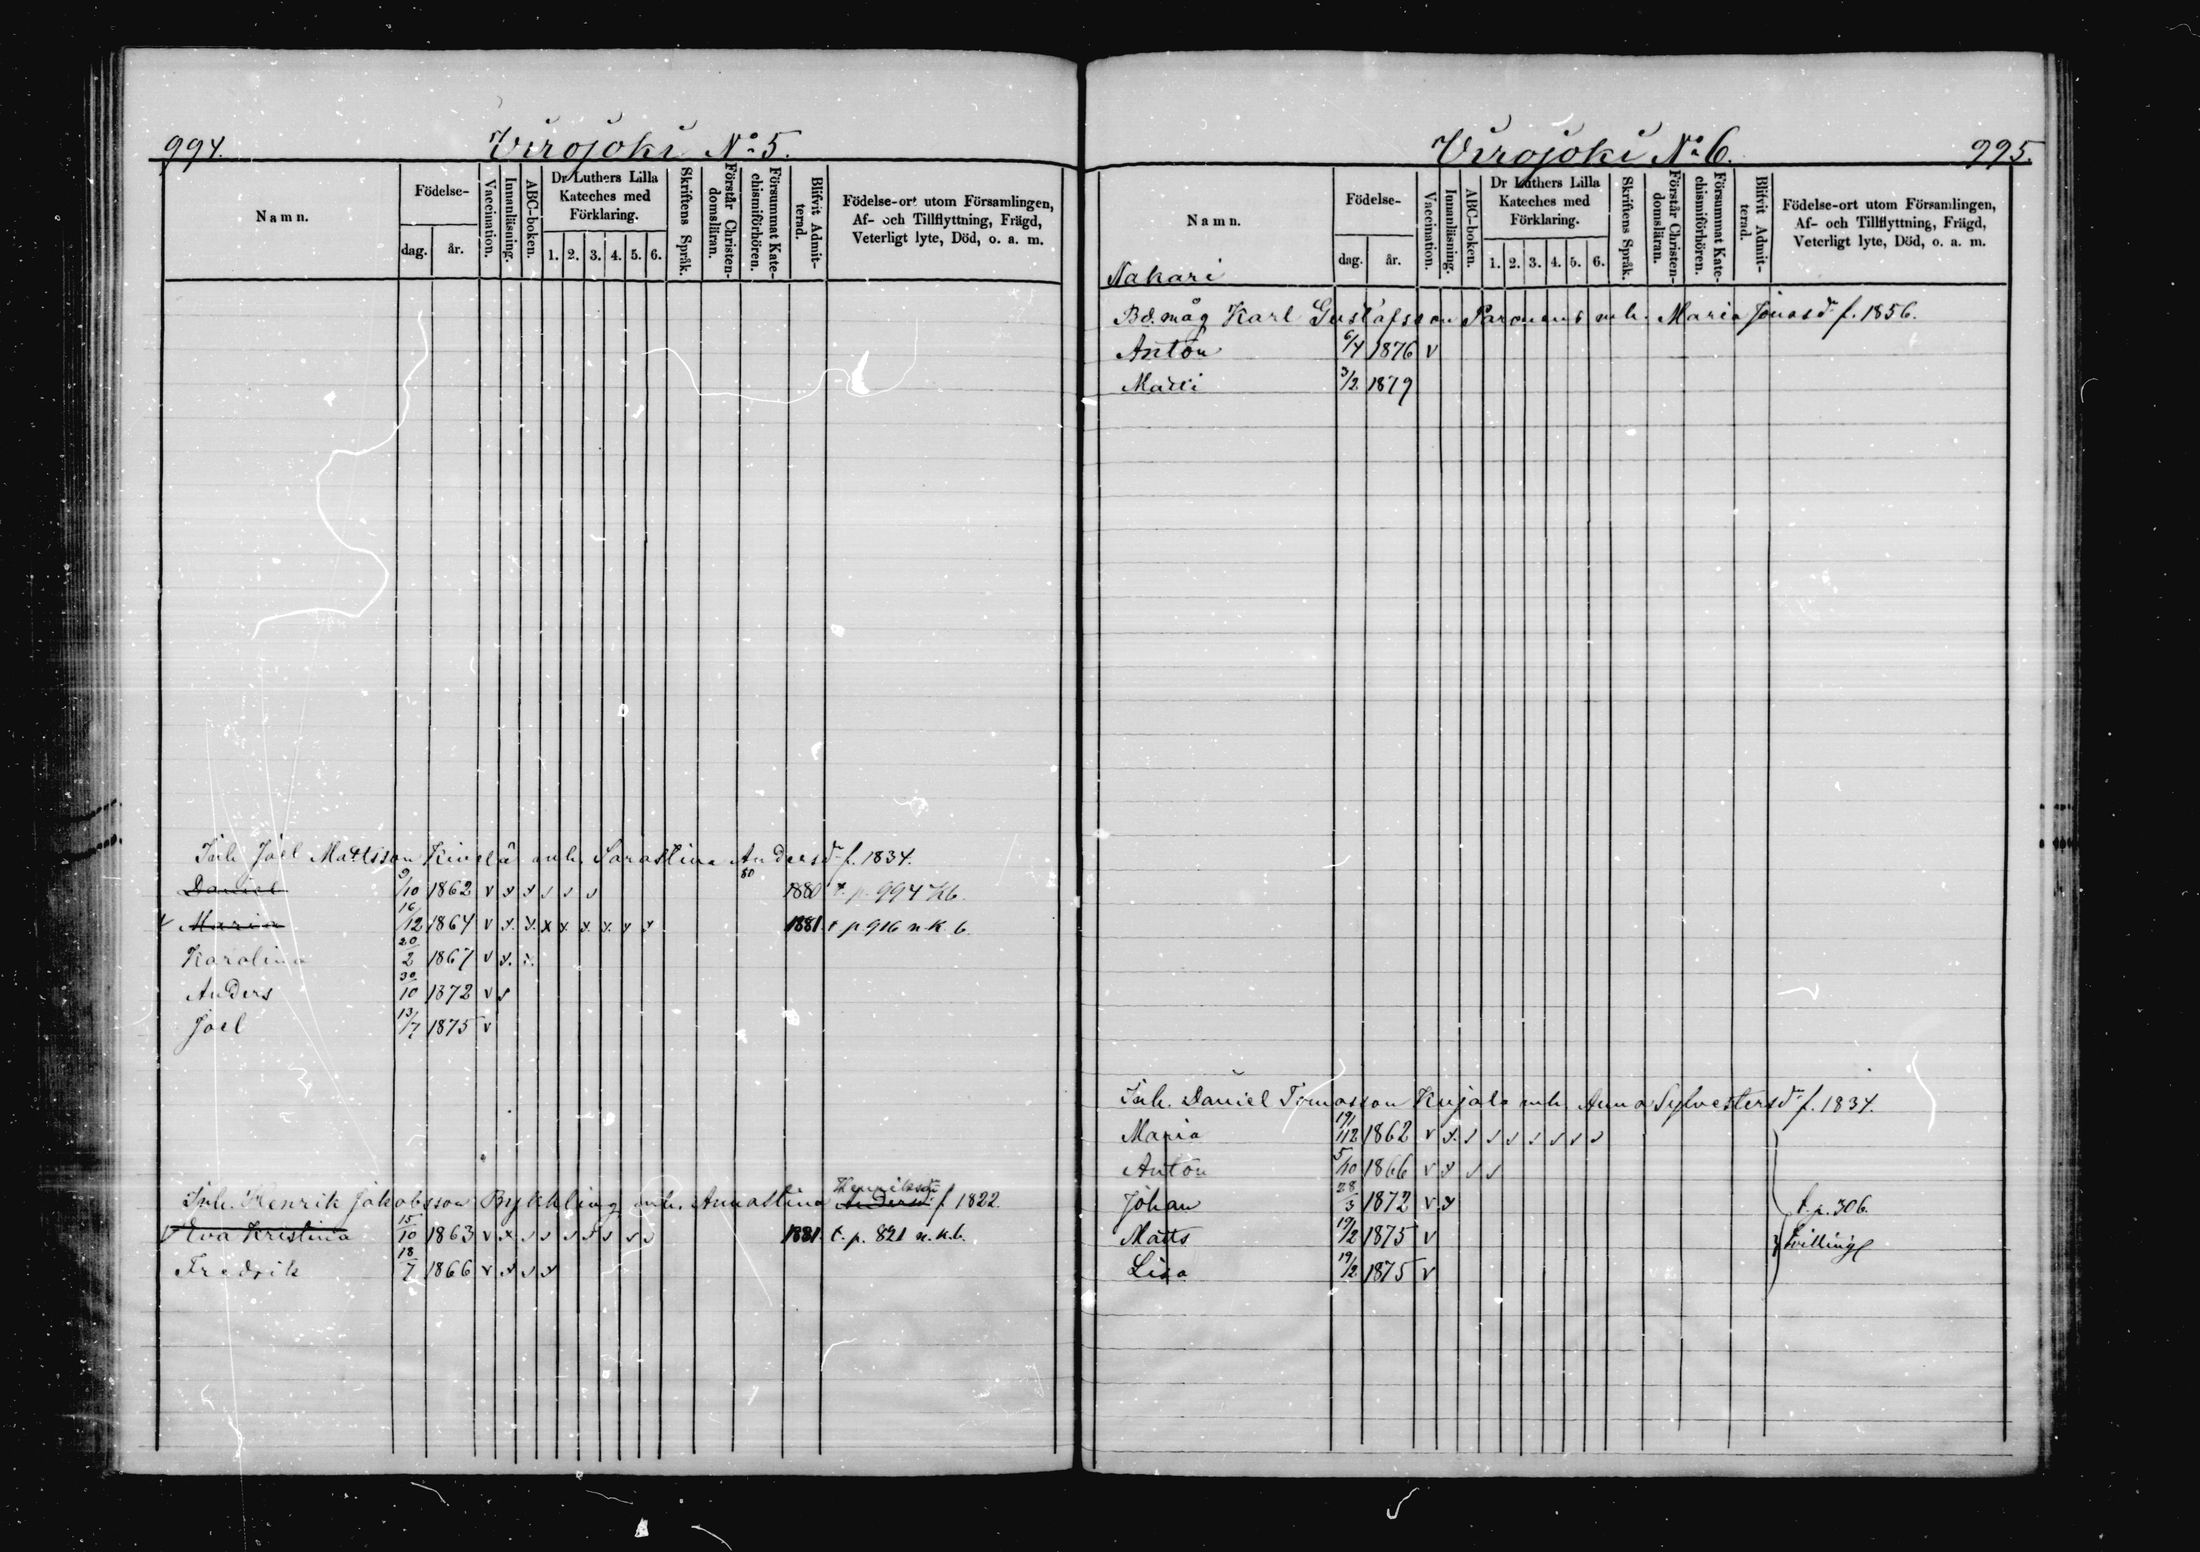 994.
Virojoki No 5.
Namn.
Födelse-
dag.
år.
Vaccination.
Innanläsning.
ABC-boken.
Dr Luthers Lilla
Kateches med
Förklaring.
1. 2. 3. 4. 5. 6.
Skriftens Språk.
Förstår Christen-
domsläran.
Försummat Kate-
chismiförhören.
Blifvit Admit-
terad.
Födelse-ort utom Församlingen,
Af- och Tillflyttning, Frägd,
Veterligt lyte, Död, o. a. m.
Inh. Joel Mattsson Kivelä mh. Sarastina Andersdr f. 1834.
Daniel 9/10 1862 v x x / / / 80 1880 t. p. 994 Kb.
v Maria 16/12 1864 v x. x. x x. x x. x x 1881. t p 916 n. K. b.
Karolina 20/2 1867 v x. x.
Anders 30/10 1872 v x
Joel 13/7 1875 v
Henriksdr
Inh. Henrik Jakobsson Bykhling mh. Annastina Andersdr f. 1822.
v Eva Kristina 15/10 1863 v x / / / / / / / 1881. t. p. 821 n. k. b.
Fredrik 18/7 1866 v x / x
Virojoki No 6.
995.
Namn.
Födelse-
dag.
år.
Vaccination.
Innanläsning.
ABC-boken.
Dr Luthers Lilla
Kateches med
Förklaring.
1. 2. 3. 4. 5. 6.
Skriftens Språk.
Förstår Christen-
domsläran.
Försummat Kate-
chismiförhören.
Blifvit Admit-
terad.
Födelse-ort utom Församlingen,
Af- och Tillflyttning, Frägd,
Veterligt lyte, Död, o. a. m.
Nakari
Bd. måg Karl Gustafsson mh. Maria Jonasdr f. 1856.
Anton 6/4 1876 v
Matti 3/2 1879
Inh. Daniel Tomasson Kujala mh. Anna Sylvestersdr f. 1834.
Maria 19/12 1862 v x. / / / / / / /
Anton 5/10 1866 v x / /
Johan 28/3 1872 v x t. p. 306.
Matts 19/2 1875 v tvilling
Lisa 19/2 1875 v